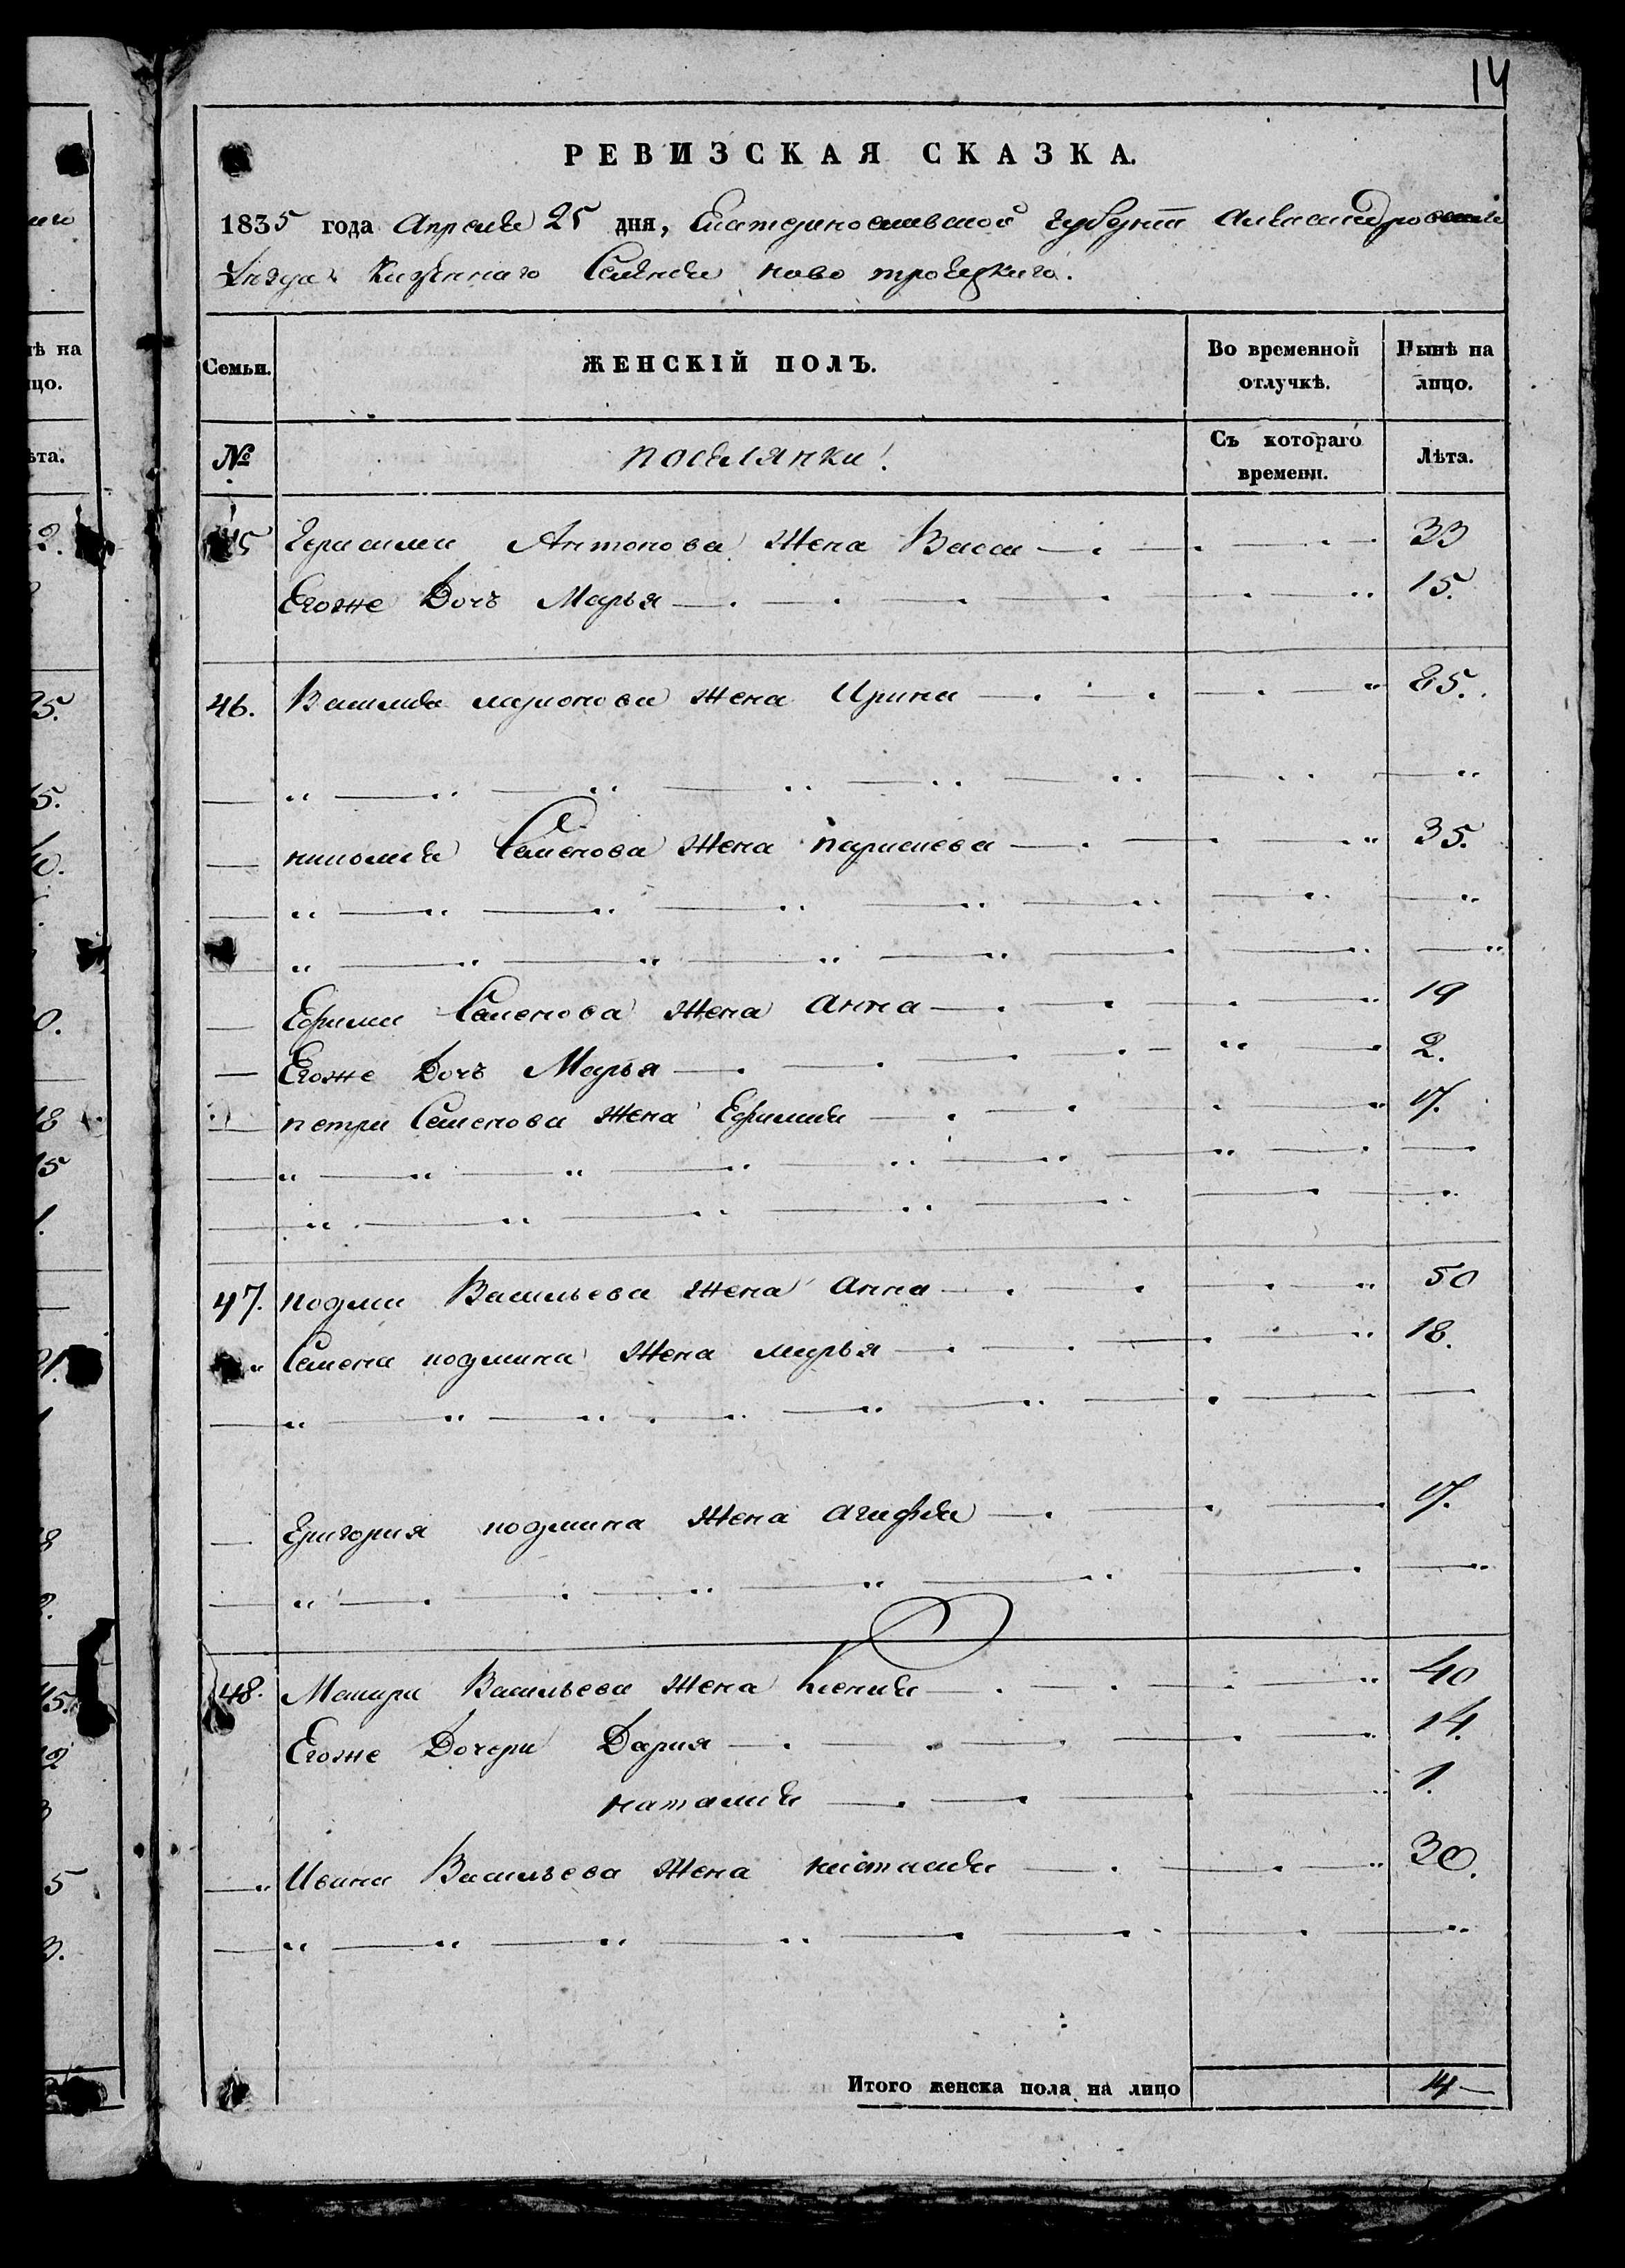 14
РЕВИЗСКАЯ СКАЗКА.
1835 года Апреля 25 дня, Екатеринославской губернии Александровскаго
уезда Казеннаго Селения ново троецкаго.
Семьи. ЖЕНСКІЙ ПОЛЪ. Во временной отлучкѣ. Нынѣ на лицо.
№ поселянки Съ котораго времени. Лѣта.
45 Герасима Антонова Жена Васса 33
Егоже Дочь Марья 15.
46. Василия Жена Ирина
николая Семенова Жена параскева 35.
Ефима Семенова Жена анна 19
Егоже Дочь Марья 2.
петра Семенова Жена Ефимия 17.
47. козми Васильева Жена анна 50
Семена козмина Жена марья 18.
Григория козмина Жена агафия 17.
48. Макара Васильева Жена Ксения 40
Егоже Дочери Дария 14.
наталия 1.
Ивана Васильева Жена настасия 30.
Итого женска пола на лицо 14